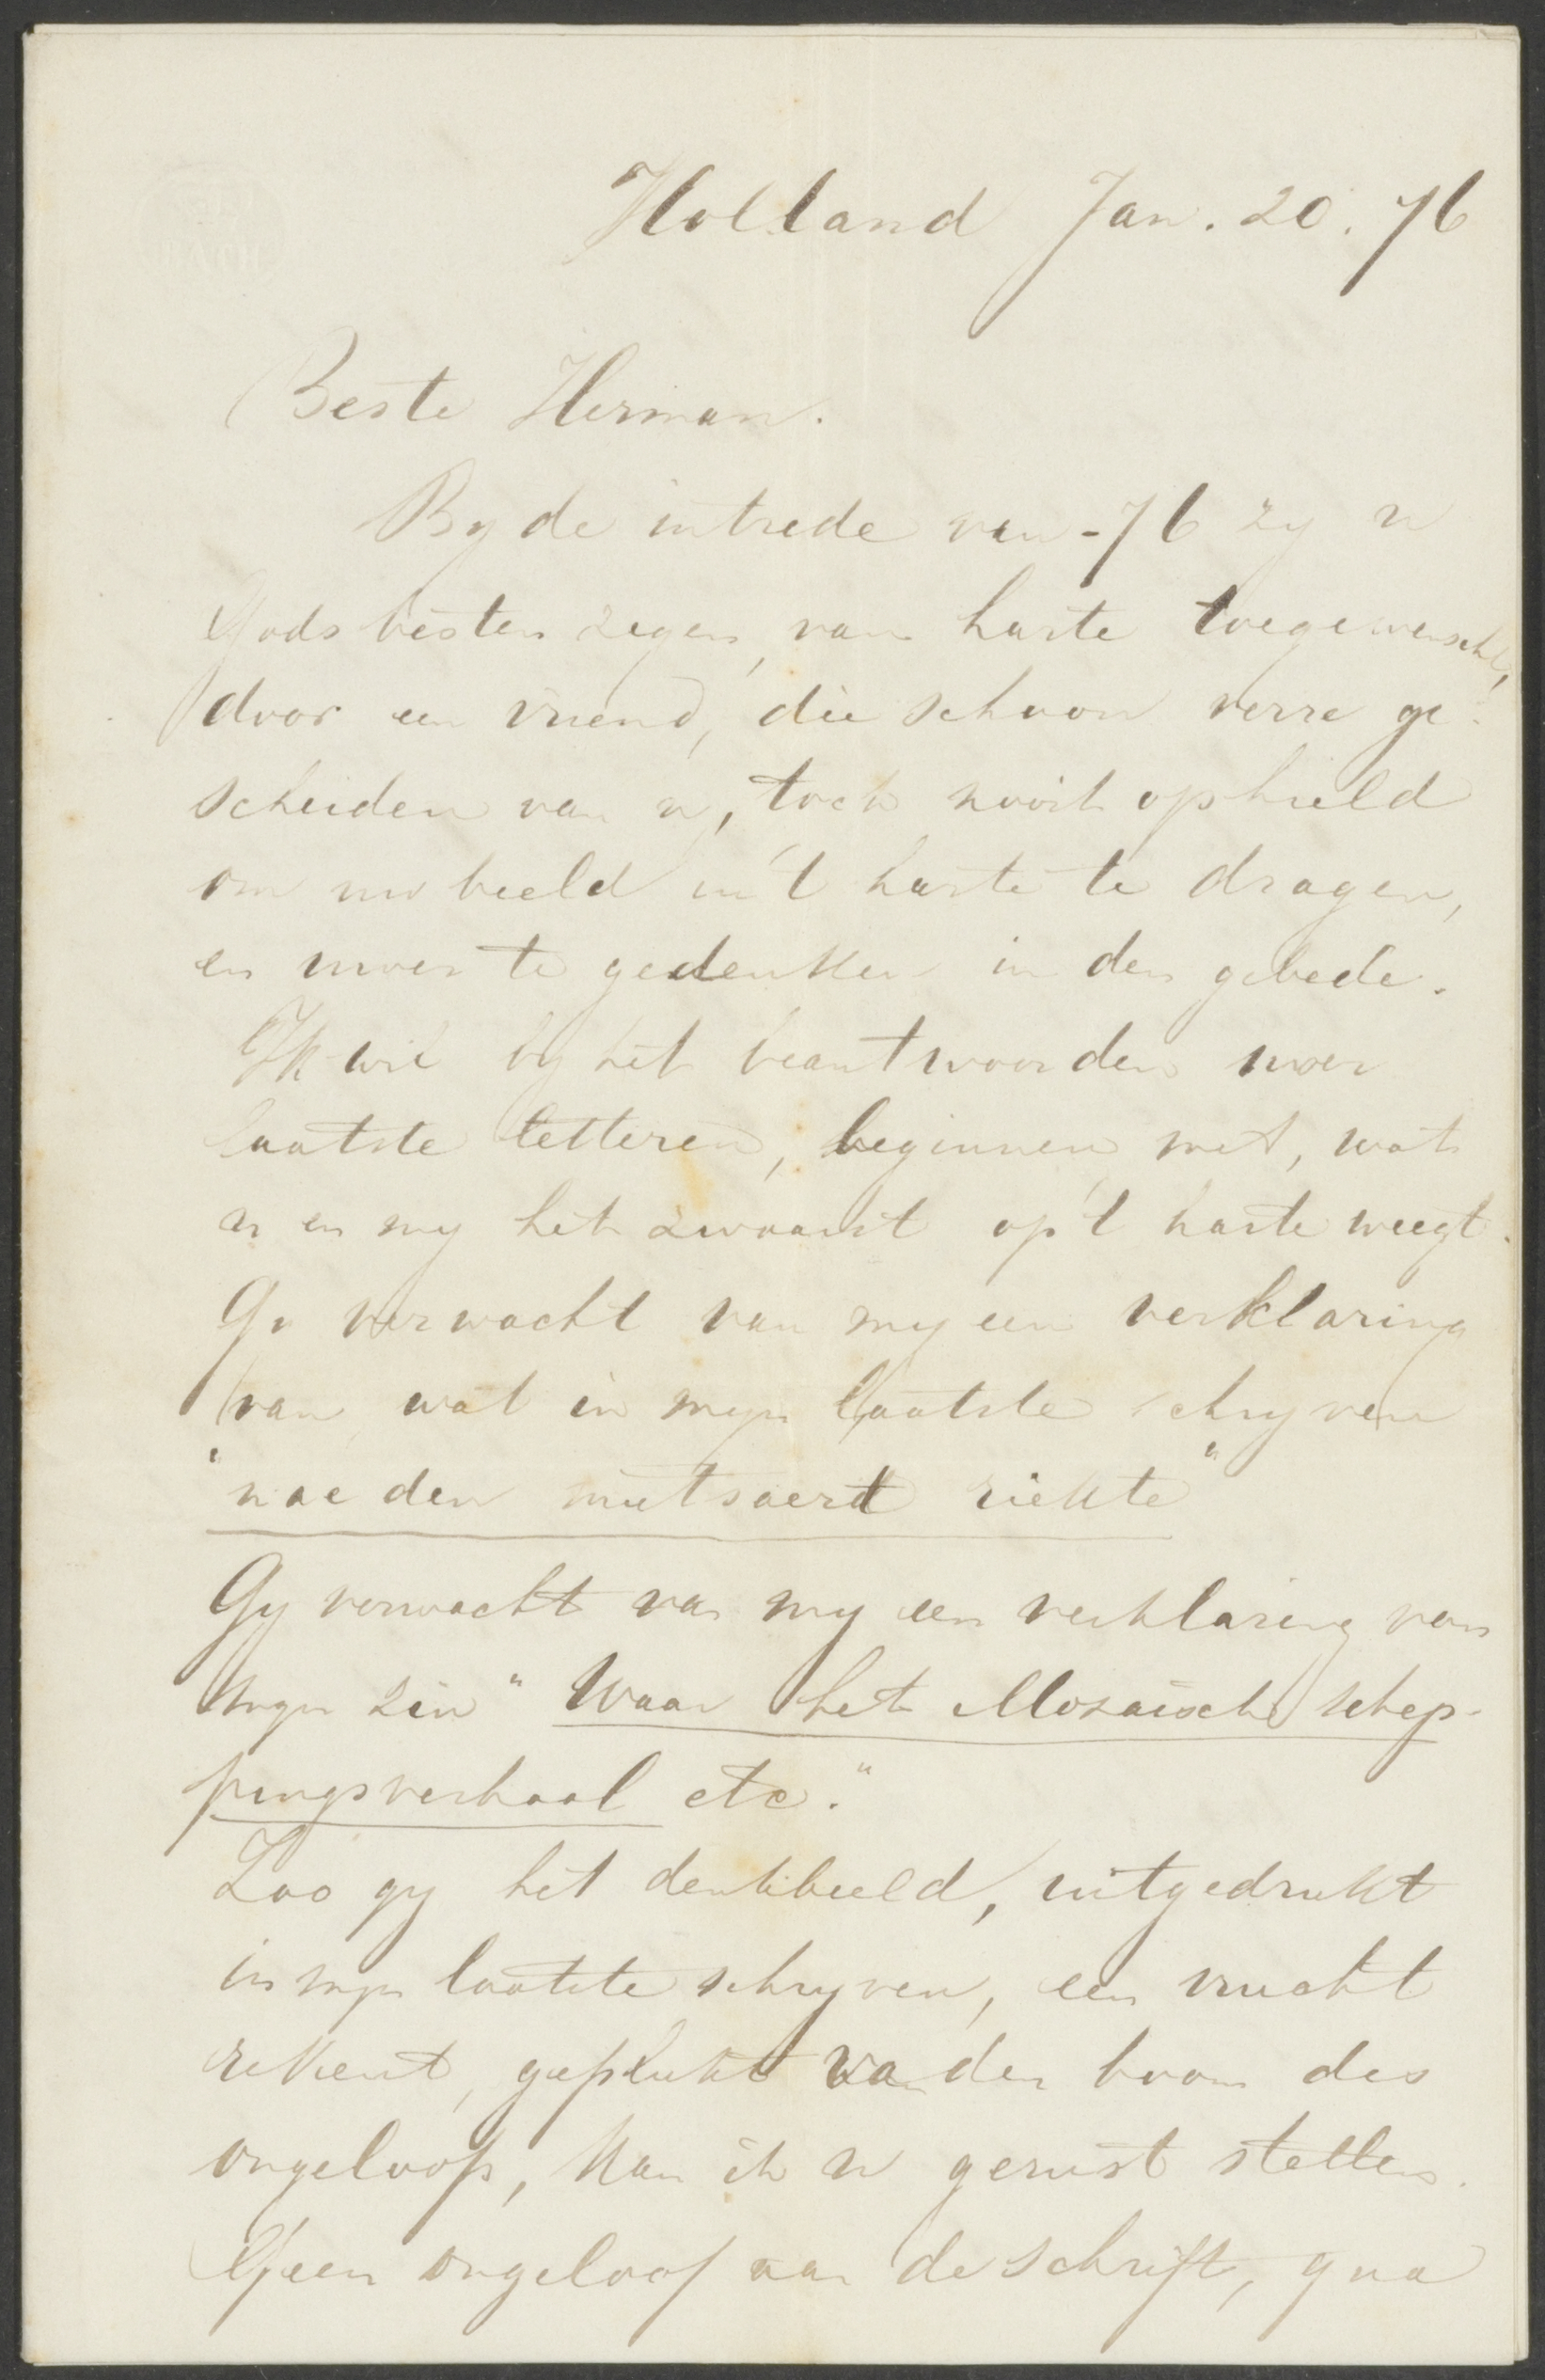 Holland Jan. 20. 76
Beste Herman.
By de intrede van -76 zy u
Gods besten zegen, van harte toegewenscht,
door een vriend, die schoon verre ge-
scheiden van u, toch nooit ophield
om uw beeld in 't harte te dragen,
en uwer te gedenken in den gebede.
Ik wil by het beantwoorden uwer
laatste letteren, beginnen met, wat
u en my het zwaarst op 't harte weegt.
Gy verwacht van my een verklaring
van wat in myn laatste schryven
"nae den mutsaerd riekte"
Gy verwacht van my een verklaring van
myn zin "Waar het Mozaische schep-
pingsverhaal etc."
Zoo gy het denkbeeld, uitgedrukt
in myn laatste schryven, een vrucht
rekent, geplukt van den boom des
ongeloofs, kan ik u gerust stellen.
Geen ongeloof aan de Schrift, qua